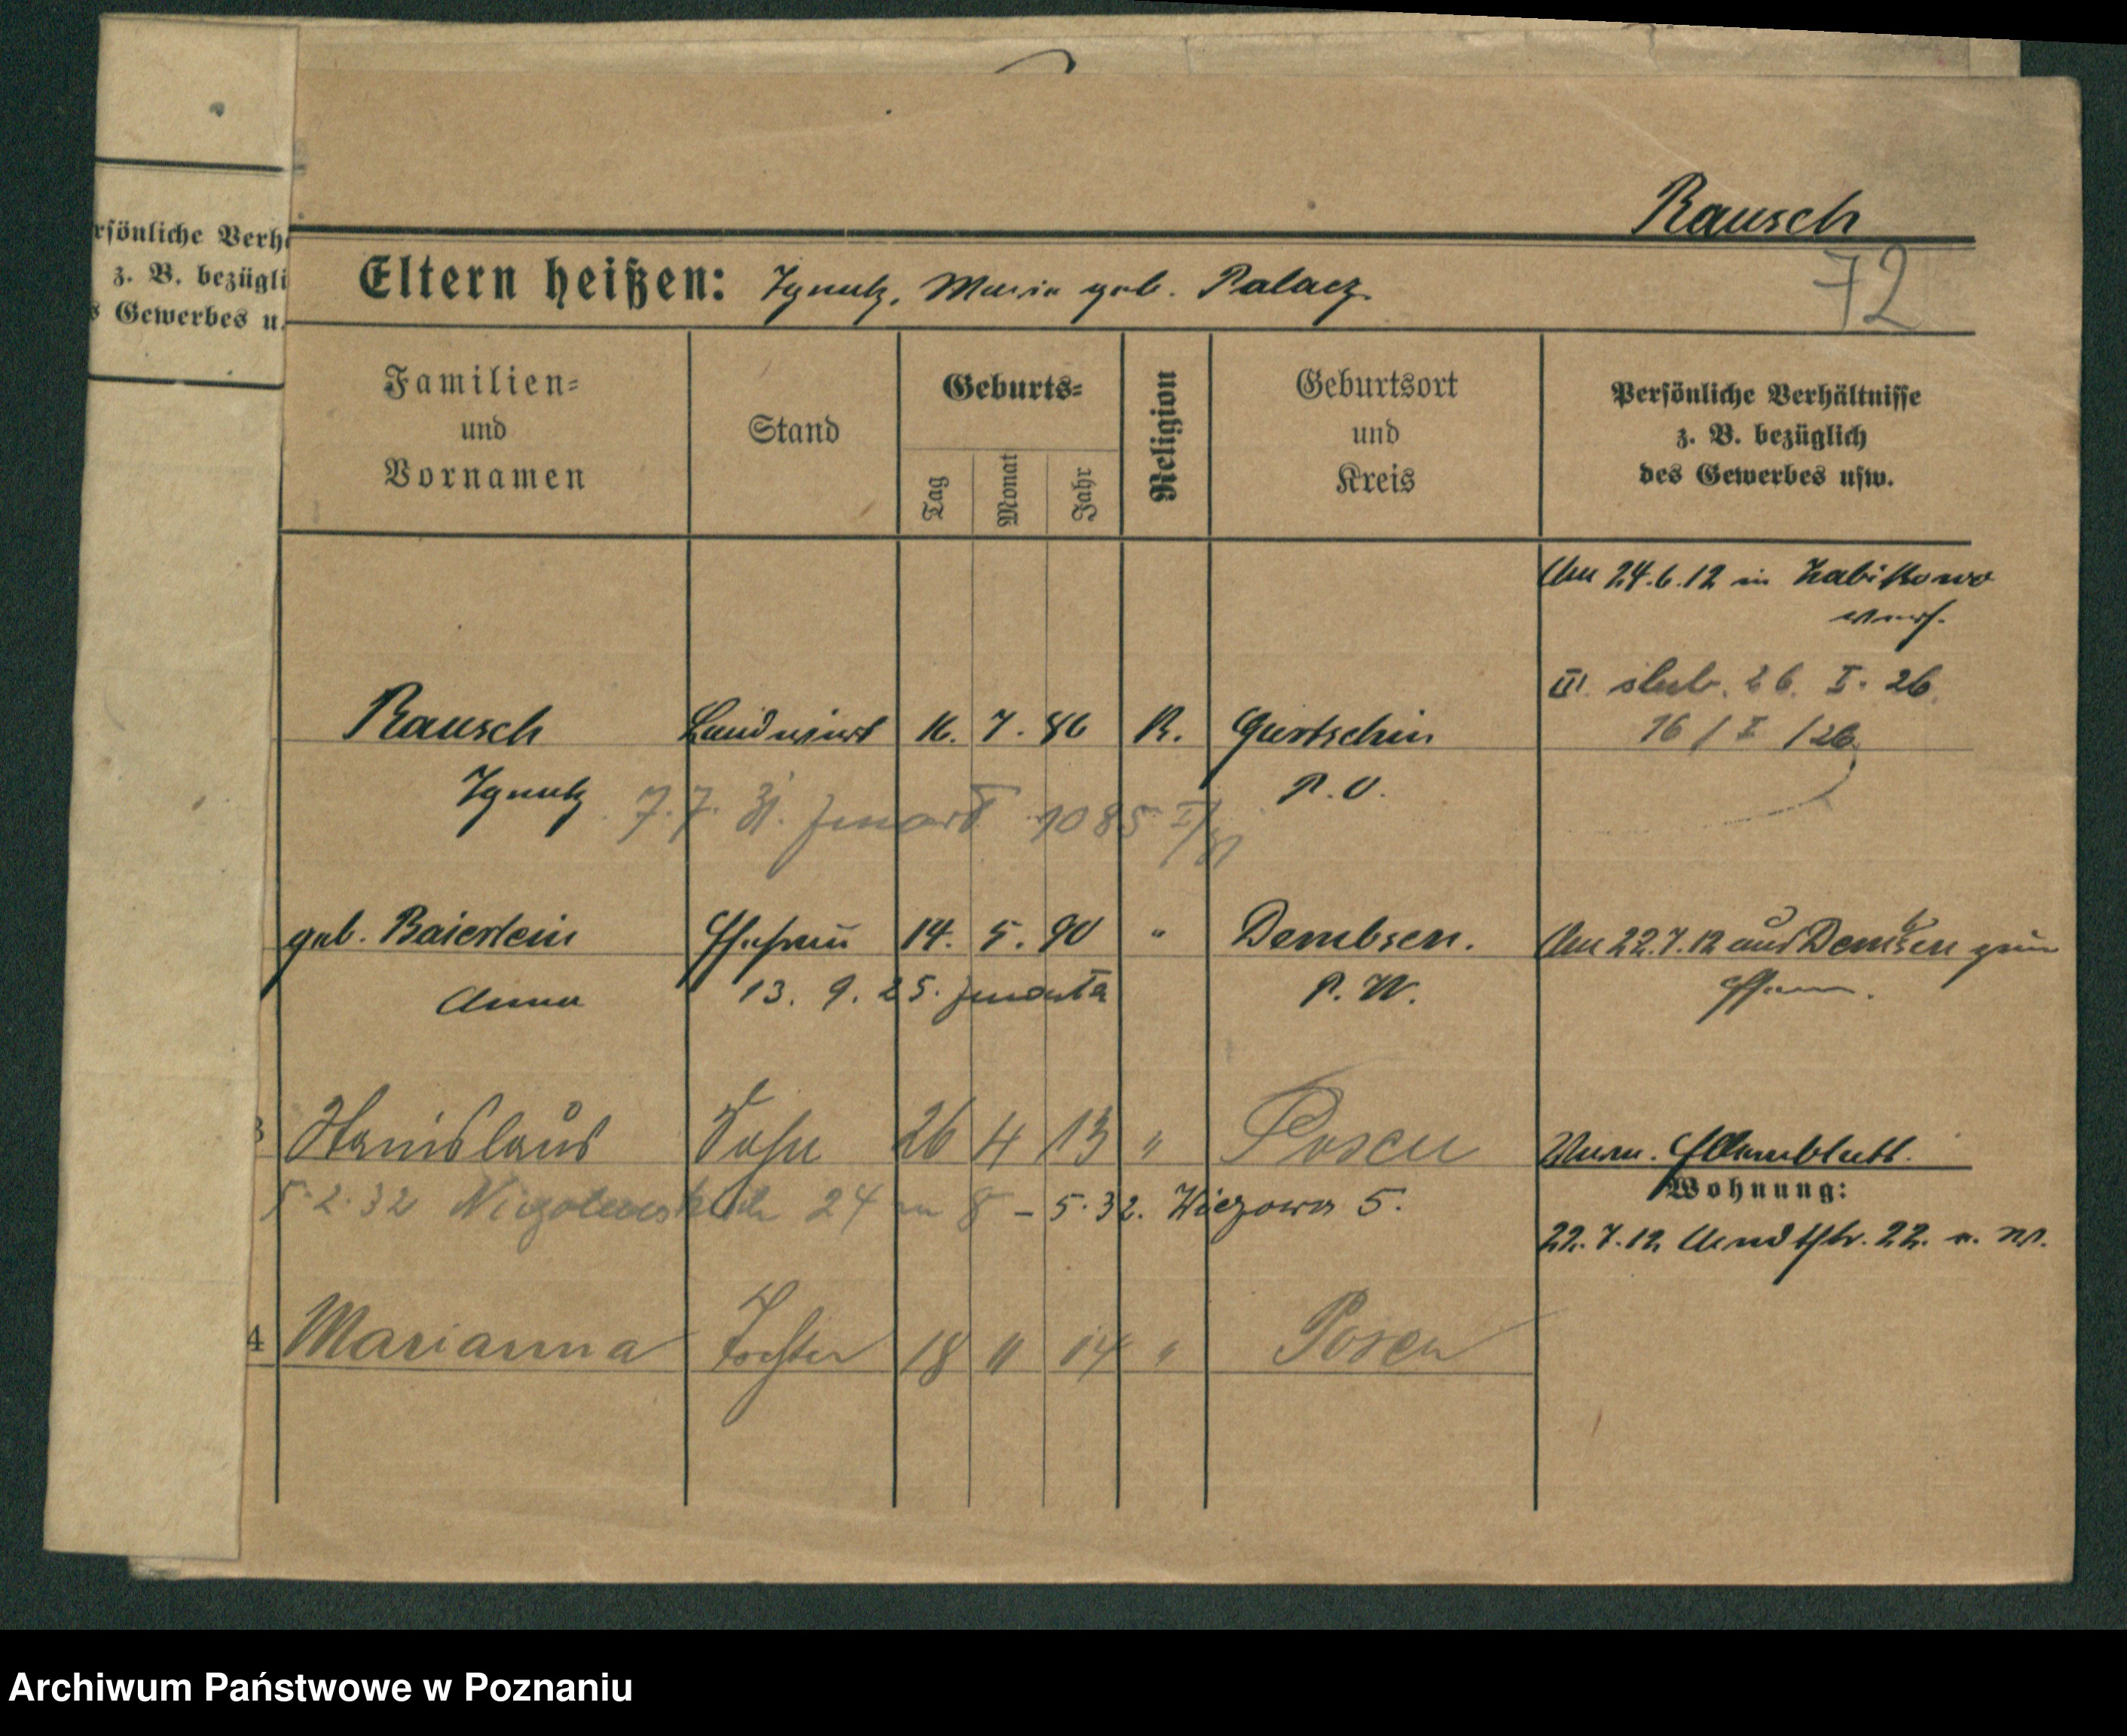 Rausch
72
rsönliche Verh
z. B. bezügli
s Gewerbes u.
Eltern heißen: Ignatz, Maria geb. Palacz
Familien-
und
Vornamen
Stand
Geburts-
Tag
Monat
Jahr
Religion
Geburtsort
und
Kreis
Persönliche Verhältnisse
z. B. bezüglich
des Gewerbes usw.
Am 24.6.12 in Zabikowo
verh.
III. ślub. 26. I. 26.
16 / I /26
Rausch Landwirt 16. 7. 86 R. Gurtschin
Ignatz P. O.
7.7. 31. zmarł 1085 I/31
geb. Baierlein Ehefrau 14. 5. 90 " Dembsen. Am 22.7.12 aus Dembsen zum
Anna 13. 9. 25. zmarła P. W. Ehem.
3 Stanislaus Sohn 26 4 13 " Posen
5.2.32 24 m 8 – 5.32. Wiązowa 5.
Wohnung:
22.7.12 Arndtstr. 22. n. W.
4 Marianna Tochter 18 11 14 " Posen
Archiwum Państwowe w Poznaniu